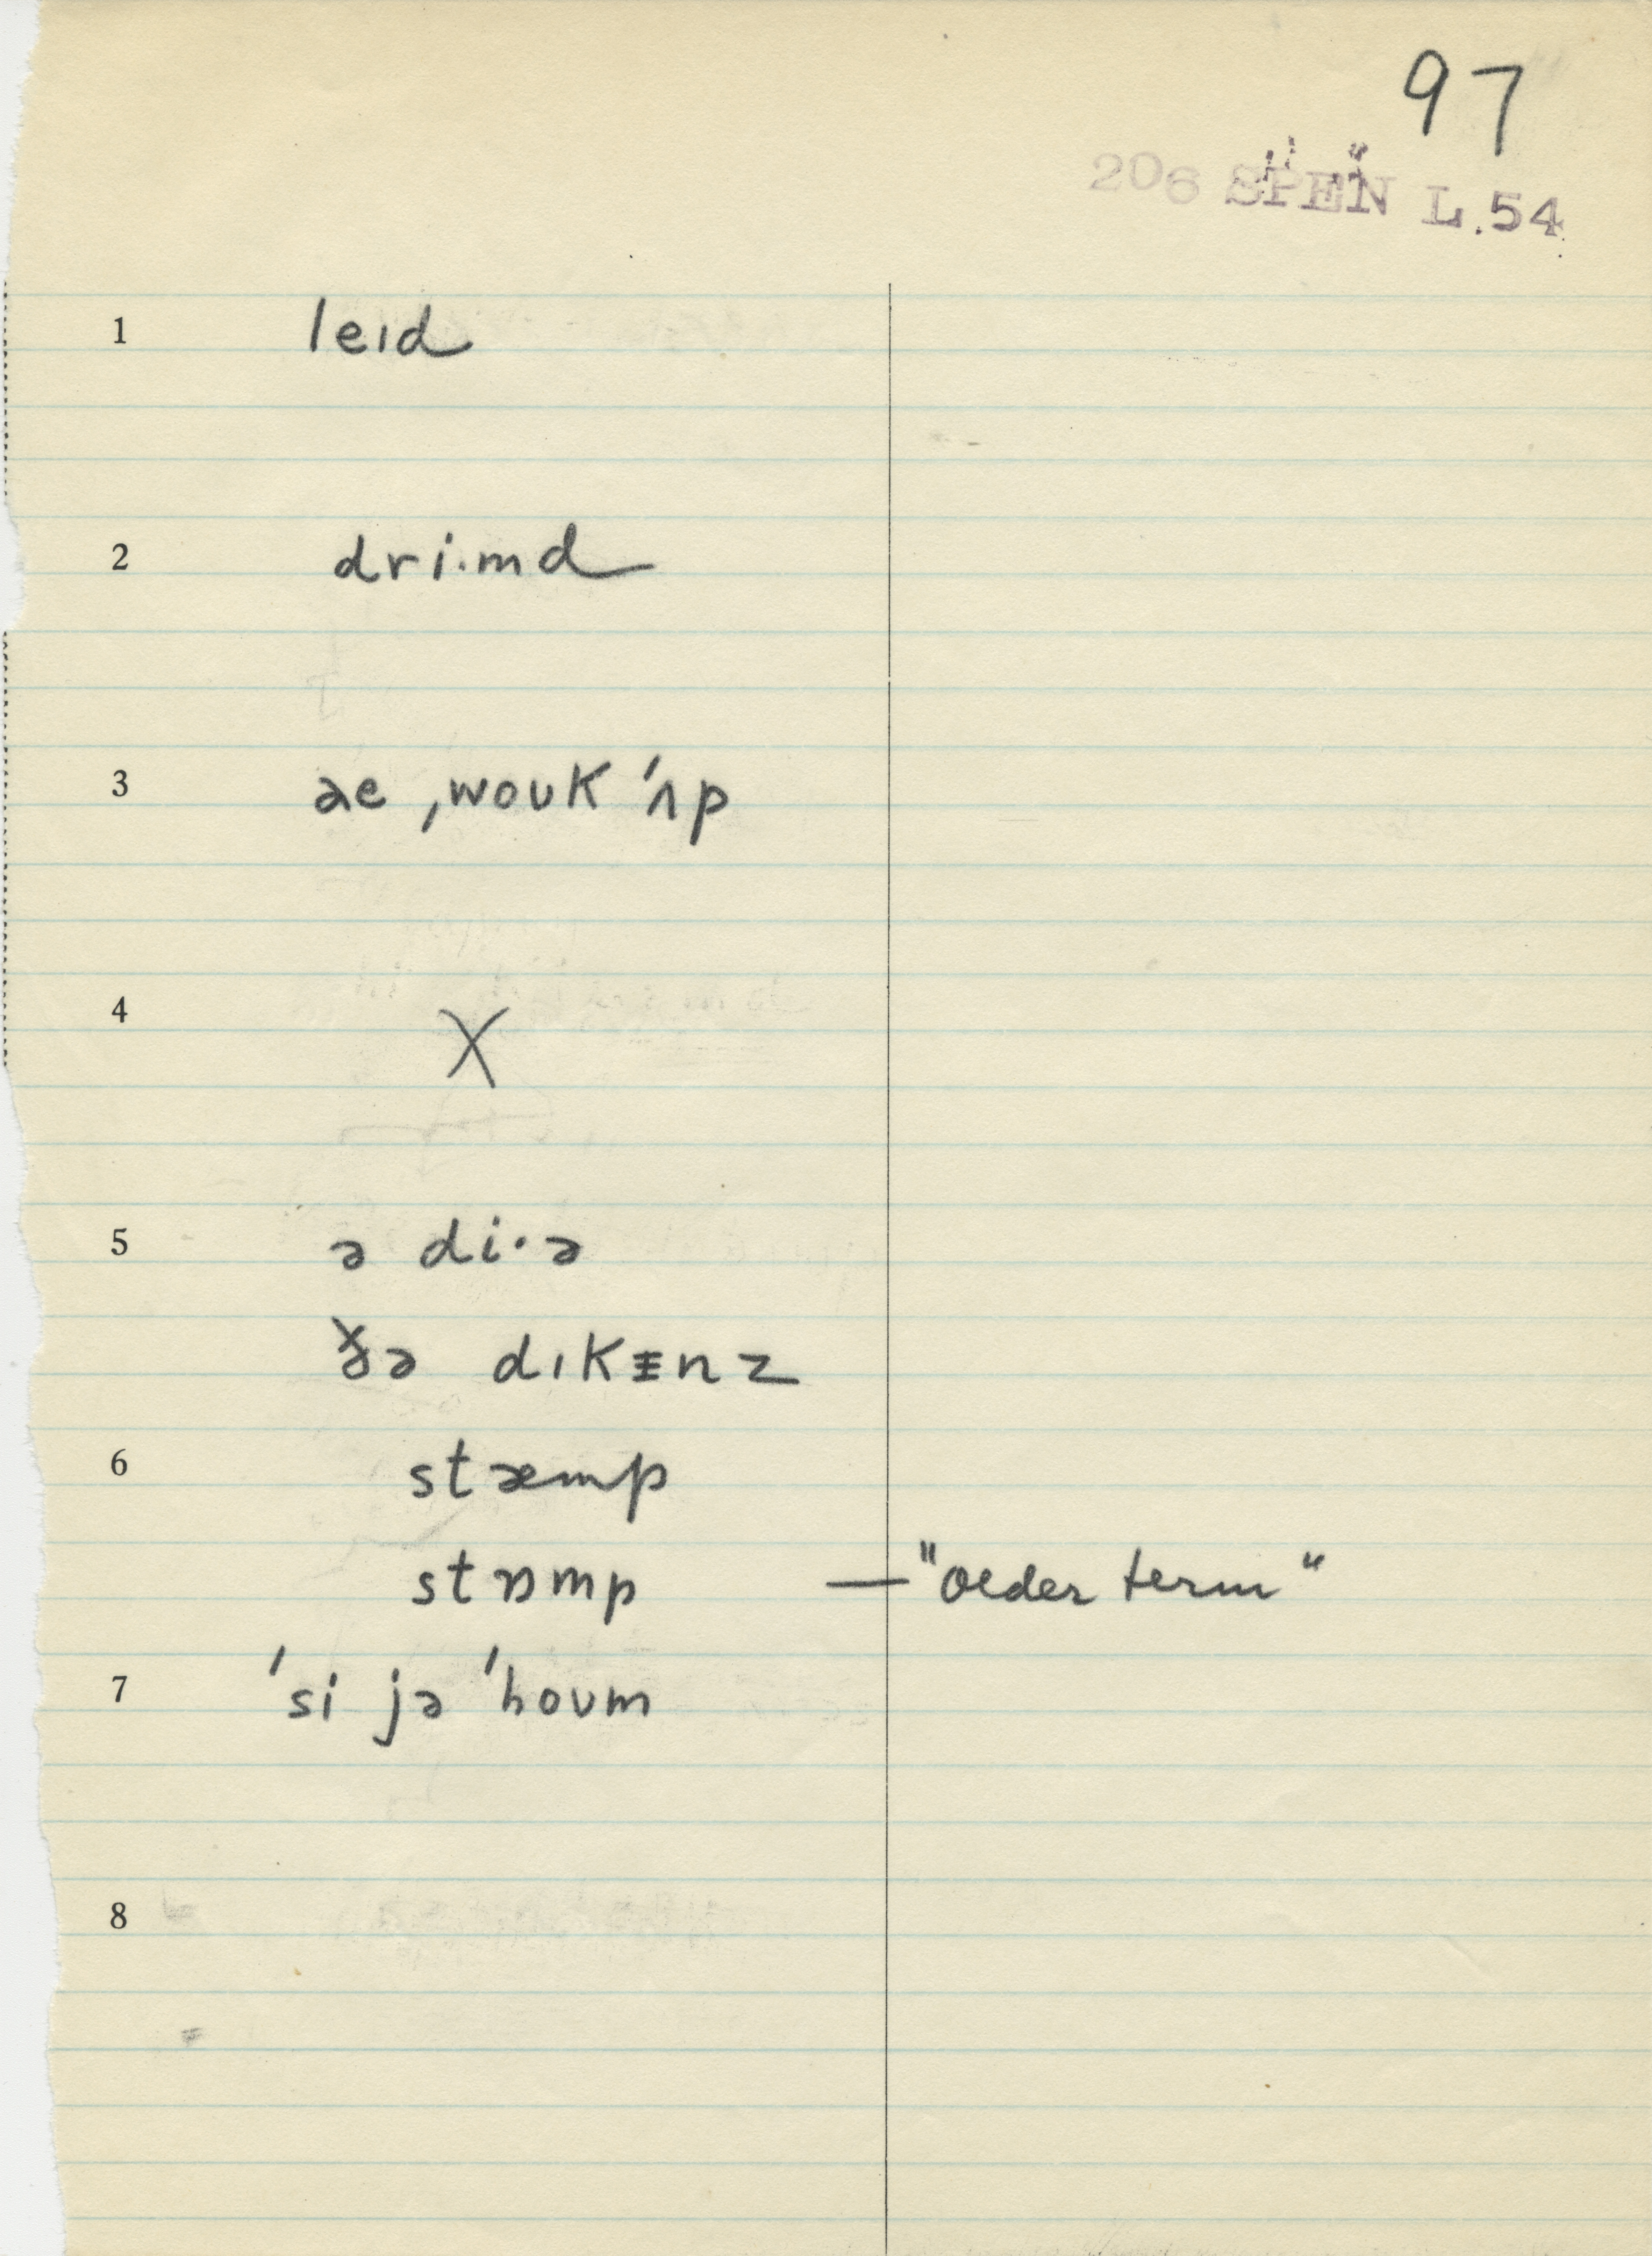 97
206 SPEN L.54
1 leɪd
2 dri·md
3 ae ˌwoʊk ˈʌp
4 X
5 ə di·ə
ðə dɪkᵻnz
6 stæmp
stɒmp — "older term"
7 ˈsi jə ˈhoʊm
8